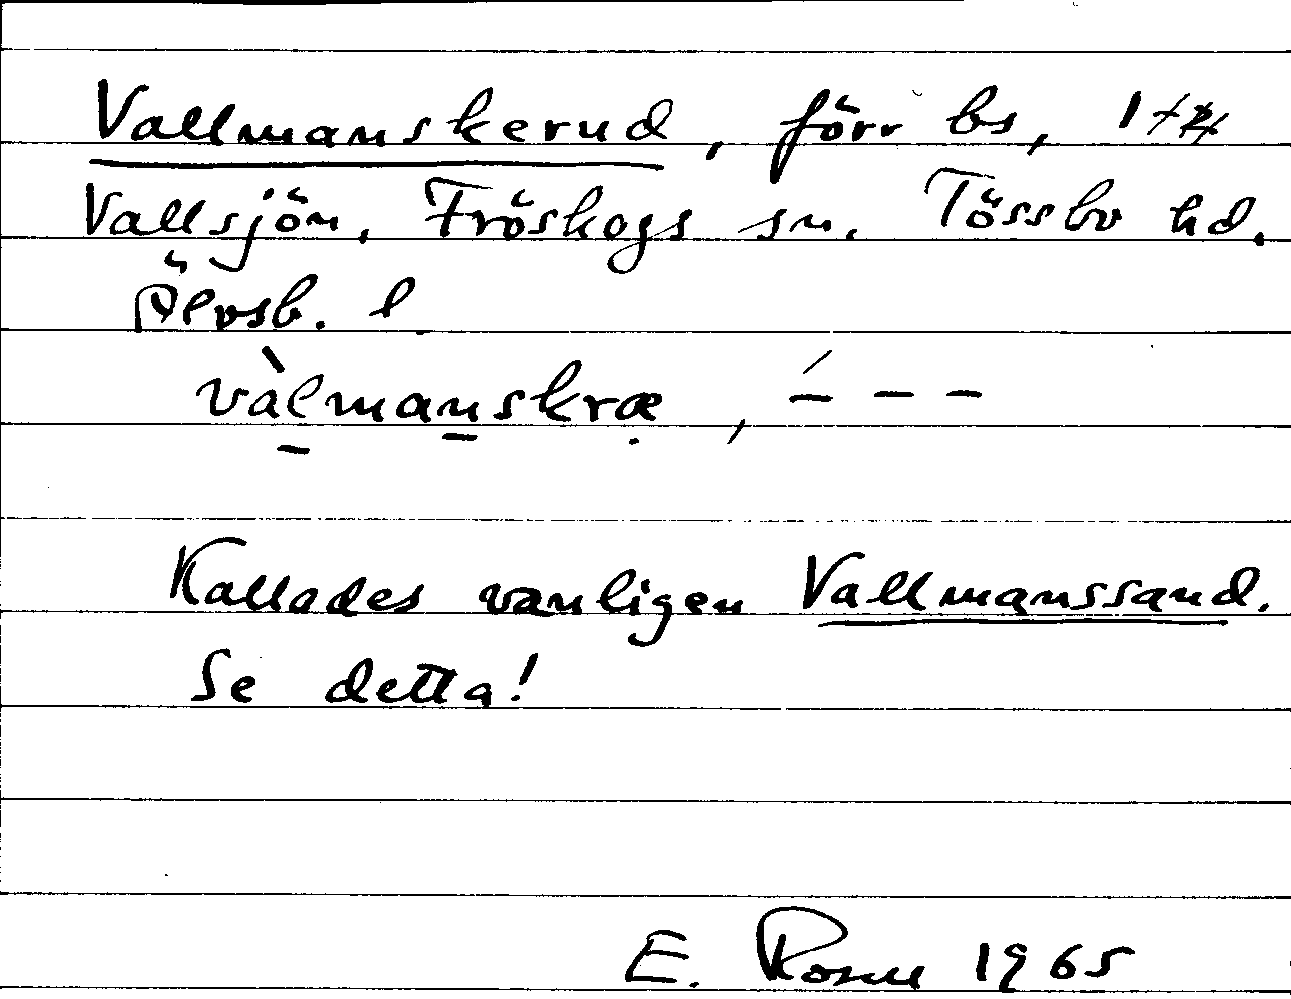 Vallmanskerud, förr bs, 1/4
Vallsjön, Fröskogs sn. Tössbo hd.
Älvsb. l.
vàlmanskræ, ´– – –
Kallades vanligen Vallmanssand.
Se detta!
E. Rosell 1965